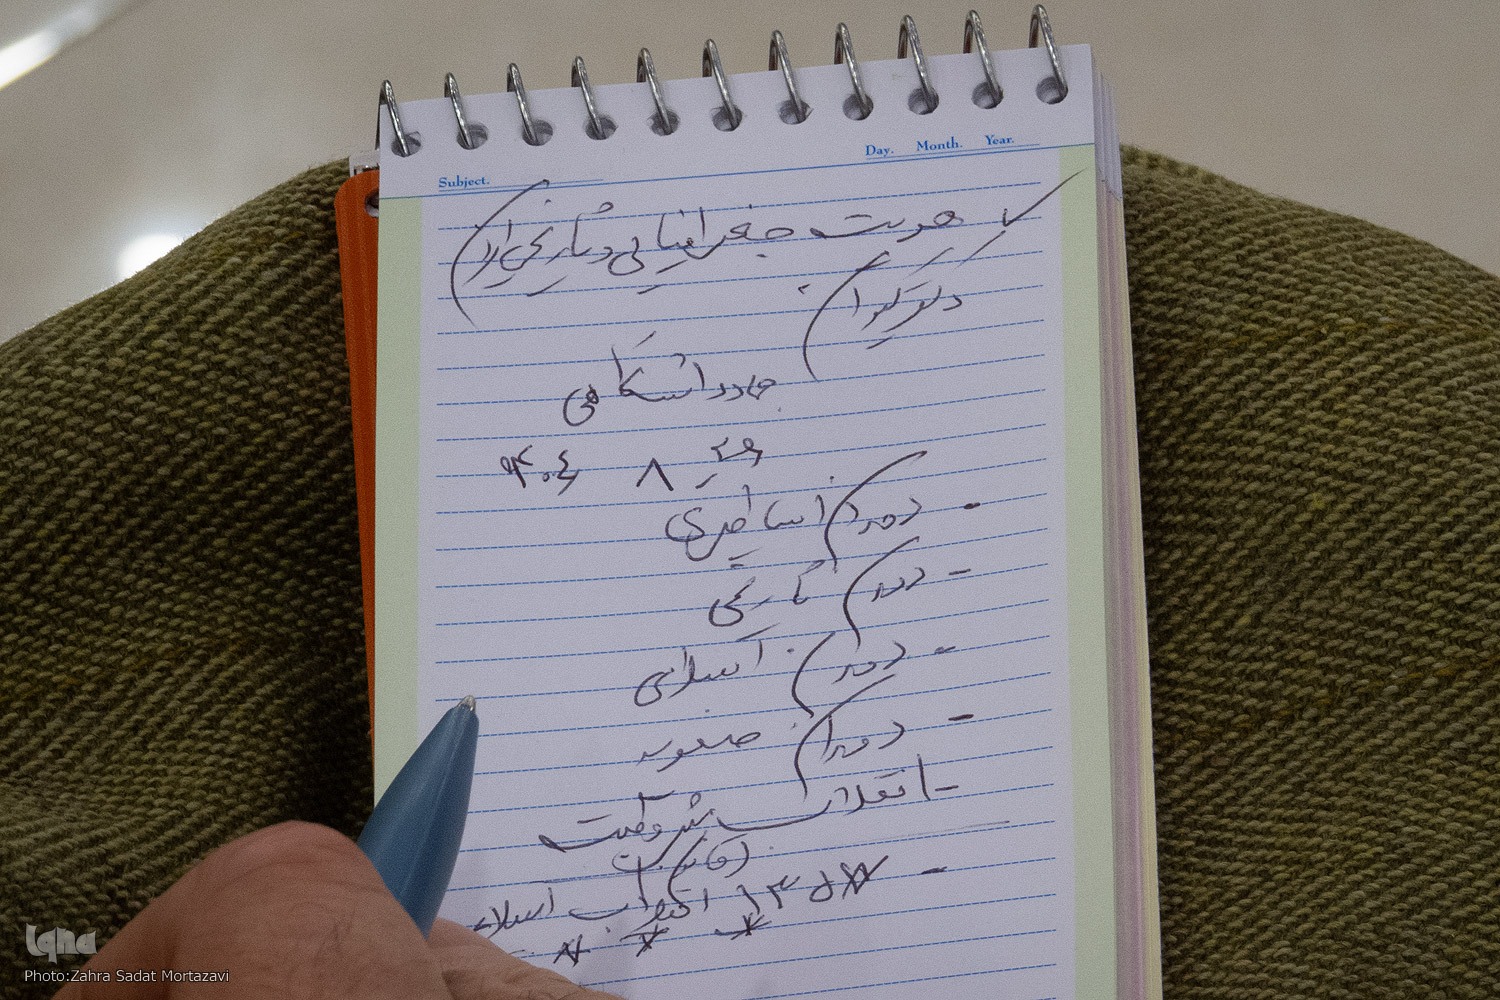 Day. Month. Year.
Subject.
هویت جغرافیایی و تاریخی ایران
دکتر
جهاد دانشگاهی
۸ ۴۰۴
- دوران اساطیری
- دوران تاریخی
- دوران اسلامی
- دوران صفویه
- انقلاب مشروطیت
- ۱۳۵۷ انقلاب اسلامی
Iqna
Photo:Zahra Sadat Mortazavi